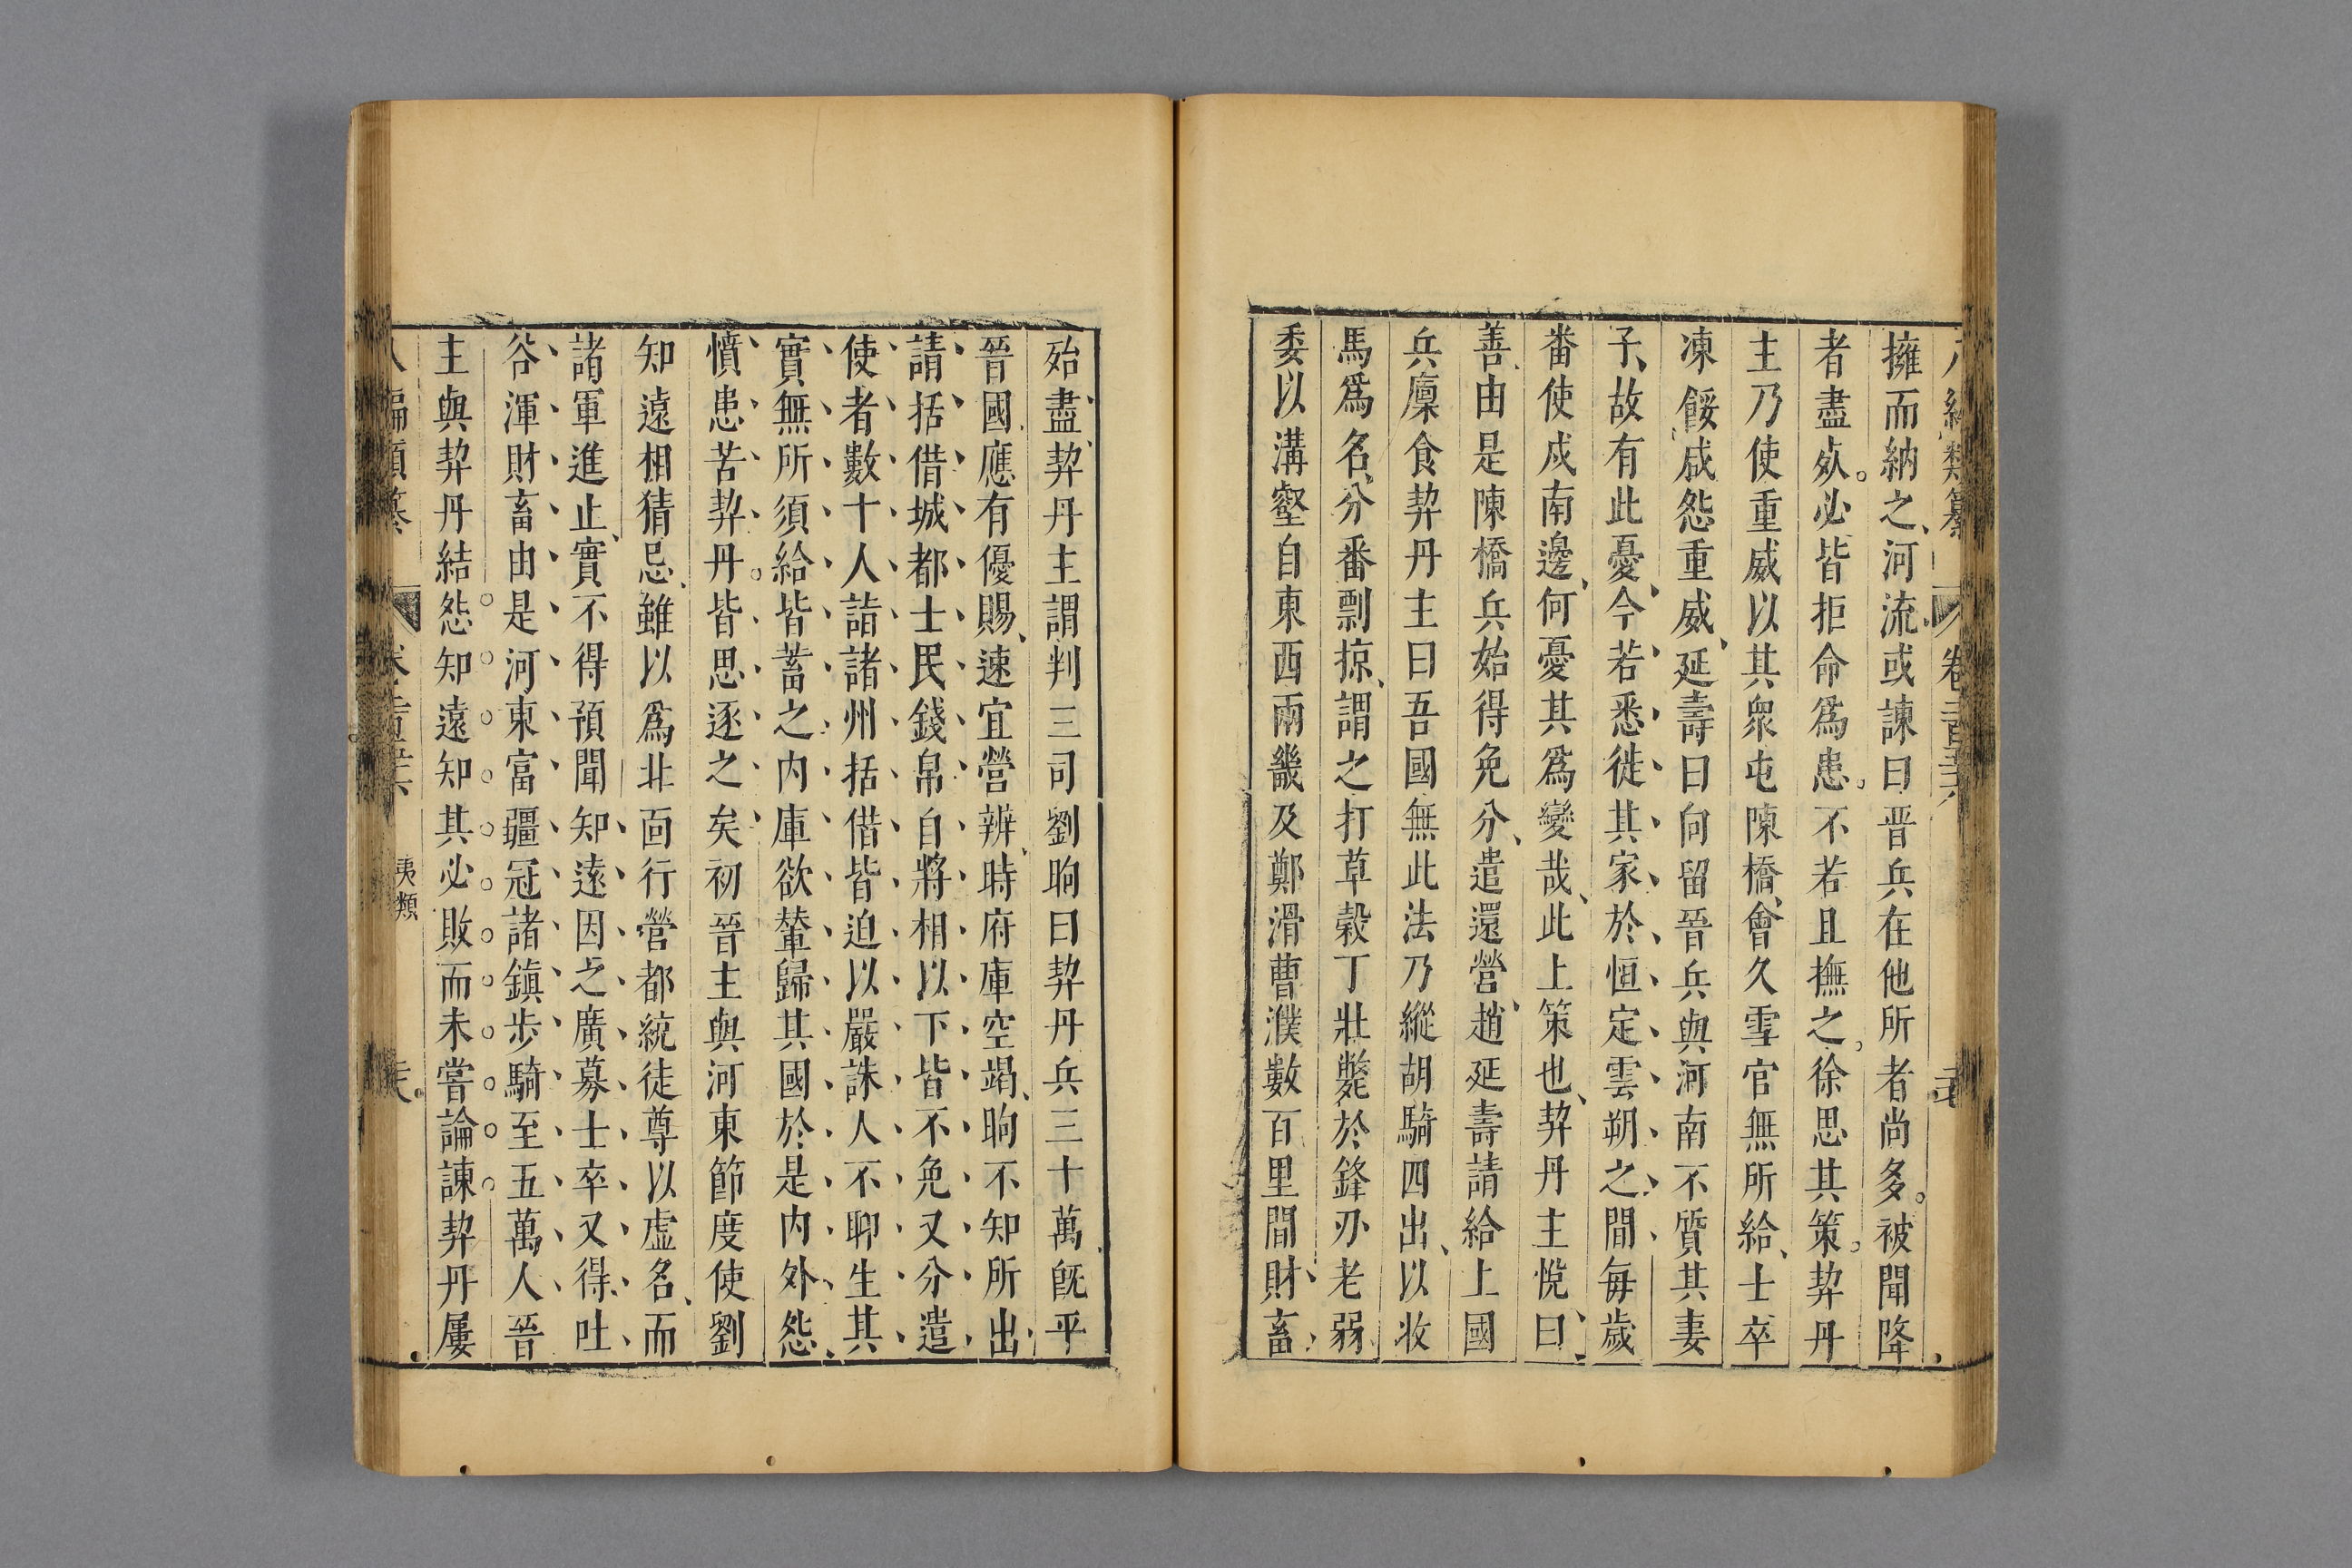 擁而納之河流或諫曰晋兵在他所者尚多被聞降
者盡死必皆拒命爲患不若且撫之徐思其策契丹
主乃使重威以其衆屯陳橋會久雪官無所給士卒
凍餒咸怨重威延壽曰向留晉兵與河南不質其妻
子故有此憂今若悉徙其家於恒定雲朔之間每歲
番使戍南邊何憂其爲變哉此上策也契丹主悅曰
善由是陳橋兵始得免分遣還營趙延壽請給上國
兵廩食契丹主曰吾國無此法乃縱胡騎四出以收
馬爲名分番剽掠謂之打草穀丁壯斃於鋒刃老弱
委以溝壑自東西兩畿及鄭滑曹濮數百里間財畜
殆盡契丹主謂判三司劉昫曰契丹兵三十萬旣平
晉國應有優賜速宜營辨時府庫空竭昫不知所出
請括借城都士民錢帛自將相以下皆不免又分遣
使者數十人詣諸州括借皆迫以嚴誅人不聊生其
實無所須給皆蓄之内庫欲輦歸其國於是内外怨
憤患苦契丹皆思逐之矣初晉主與河東節度使劉
知遠相猜忌雖以爲北面行營都統徒尊以虚名而
諸軍進止實不得預聞知遠因之廣募士卒又得吐
谷渾財畜由是河東富疆冠諸鎮步騎至五萬人晉
主與契丹結怨知遠知其必敗而未嘗論諫契丹屢
夷類